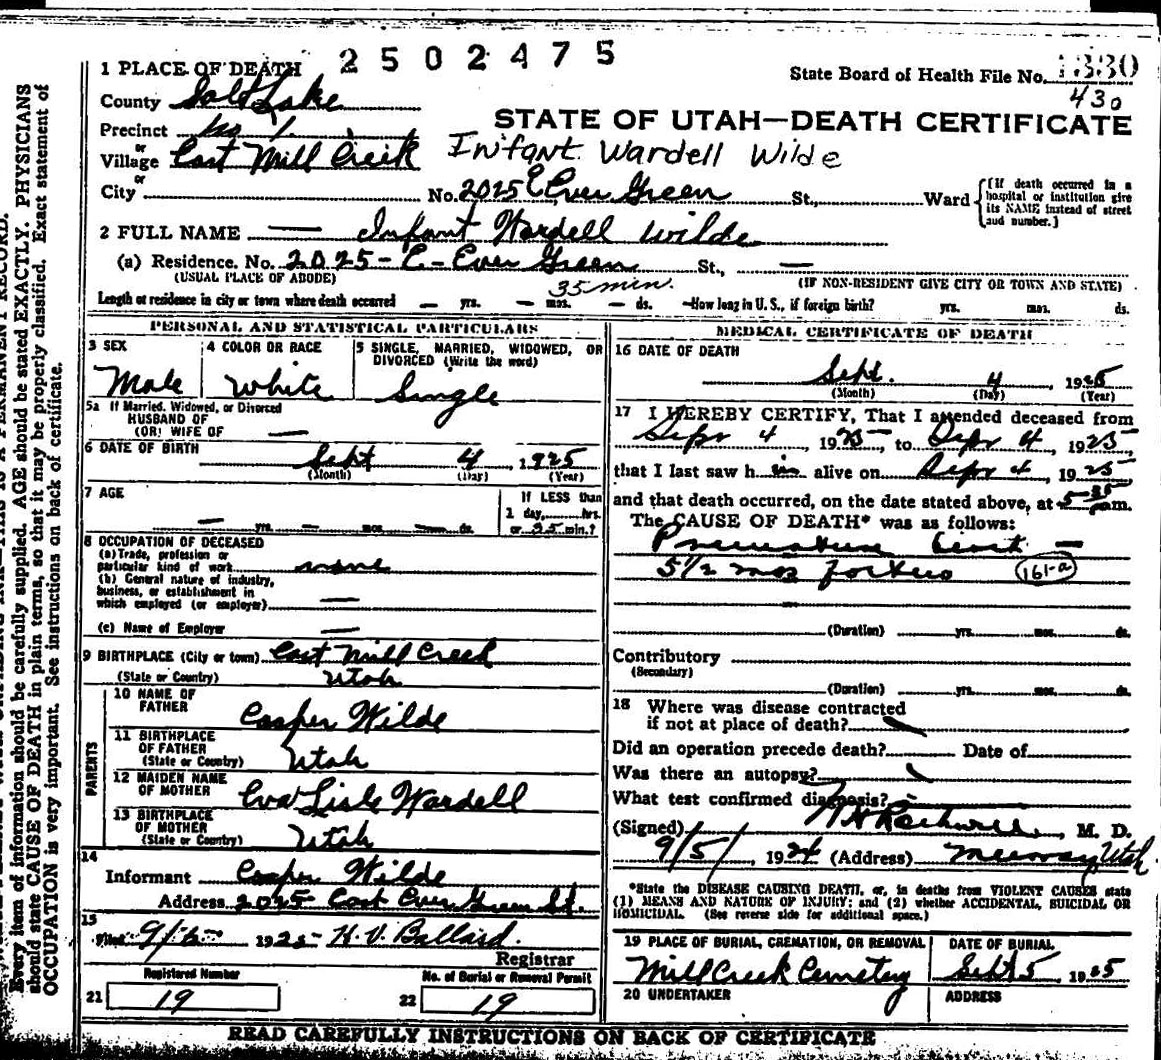 2502475
1 PLACE OF DEATH
State Board of Health File No. 1330
430
County Salt Lake
STATE OF UTAH—DEATH CERTIFICATE
Precinct No 1.
or
Village East Mill Creek Infant Wardell Wilde
or
City No. 2025 E Ever Green St., Ward {(If death occurred in a hospital or institution give its NAME instead of street and number.)
2 FULL NAME — Infant Wardell Wilde
(a) Residence. No. 2025 - E - Ever Green St., —
(USUAL PLACE OF ABODE) (IF NON-RESIDENT GIVE CITY OR TOWN AND STATE)
35 min.
Length of residence in city or town where death occurred — yrs. — mos. — ds. —How long in U. S., if foreign birth? yrs. mos. ds.
PERSONAL AND STATISTICAL PARTICULARS
3 SEX
Male
4 COLOR OR RACE
White
5 SINGLE, MARRIED, WIDOWED, OR
DIVORCED (Write the word)
Single
5a If Married, Widowed, or Divorced
HUSBAND OF
(OR) WIFE OF —
6 DATE OF BIRTH Sept 4, 1925
(Month) (Day) (Year)
7 AGE
— yrs. — mos. — ds.
If LESS than
1 day, hrs.
or 35 min.?
8 OCCUPATION OF DECEASED
(a) Trade, profession or
particular kind of work none
(b) General nature of industry,
business, or establishment in
which employed (or employer) —
(c) Name of Employer —
9 BIRTHPLACE (City or town) East Mill Creek
(State or Country) Utah
PARENTS
10 NAME OF
FATHER Casper Wilde
11 BIRTHPLACE
OF FATHER
(State or Country) Utah
12 MAIDEN NAME
OF MOTHER Eva Lisle Wardell
13 BIRTHPLACE
OF MOTHER
(State or Country) Utah
14
Informant Casper Wilde
Address 2025 East Ever Green St.
15
Filed 9/5 1925 H. V. Ballard.
Registrar
Registered Number
21 19
No. of Burial or Removal Permit
22 19
MEDICAL CERTIFICATE OF DEATH
16 DATE OF DEATH
Sept. 4, 1925
(Month) (Day) (Year)
17 I HEREBY CERTIFY, That I attended deceased from
Sept 4 1925 to Sept 4, 1925
that I last saw h im alive on Sept 4, 1925
and that death occurred, on the date stated above, at 5 35 am.
The CAUSE OF DEATH* was as follows:
Premature birth —
5 1/2 mos foetus 161-a
(Duration) yrs. mos. ds.
Contributory
(Secondary)
(Duration) yrs. mos. ds.
18 Where was disease contracted
if not at place of death?
Did an operation precede death? Date of
Was there an autopsy?
What test confirmed diagnosis?
(Signed) M. D.
9/5, 1924 (Address) Murray Utah
*State the DISEASE CAUSING DEATH, or, in deaths from VIOLENT CAUSES state
(1) MEANS AND NATURE OF INJURY; and (2) whether ACCIDENTAL, SUICIDAL OR
HOMICIDAL. (See reverse side for additional space.)
19 PLACE OF BURIAL, CREMATION, OR REMOVAL
Mill Creek Cemetery
DATE OF BURIAL
Sept 5 1925
20 UNDERTAKER
ADDRESS
READ CAREFULLY INSTRUCTIONS ON BACK OF CERTIFICATE
THIS IS A PERMANENT RECORD.
Every item of information should be carefully supplied. AGE should be stated EXACTLY. PHYSICIANS
should state CAUSE OF DEATH in plain terms, so that it may be properly classified. Exact statement of
OCCUPATION is very important. See instructions on back of certificate.